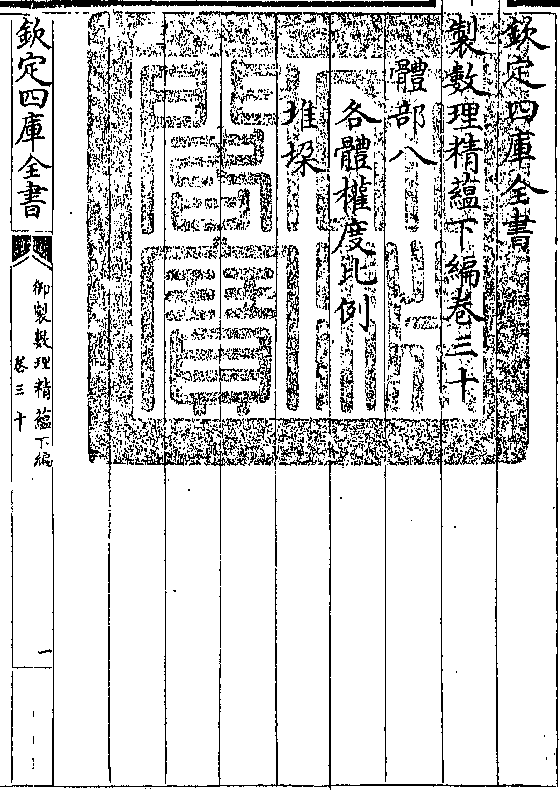 欽定四庫全書
製數理精蘊下編卷三十
體部八
各體權度比例
堆垛
欽定四庫全書
御製數理精蘊下編
卷三十
一